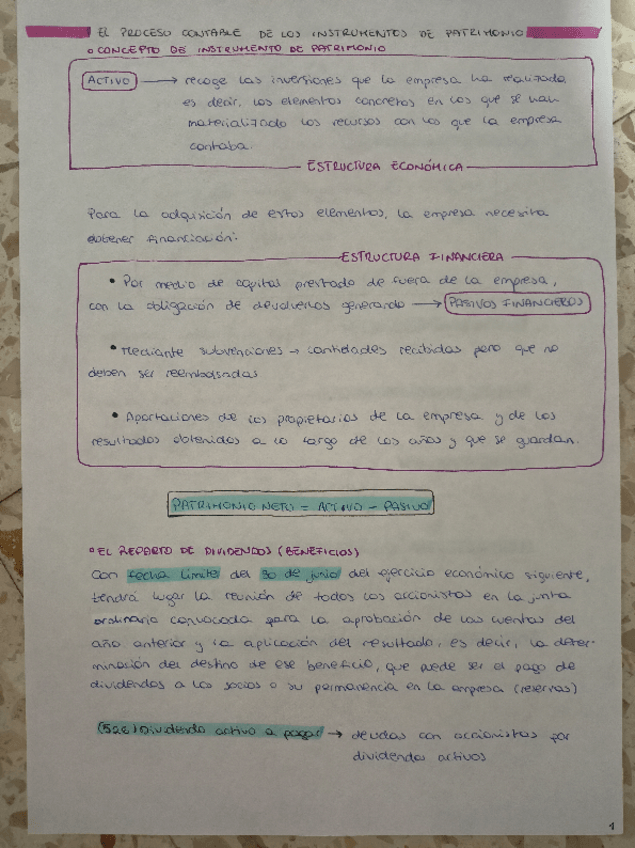 EL PROCESO CONTABLE DE LOS INSTRUMENTOS DE PATRIMONIO
CONCEPTO DE INSTRUMENTO DE PATRIMONIO
ACTIVO → recoge las inversiones que la empresa ha realizado
es decir, los elementos concretos en los que se han
materializado los recursos con los que la empresa
contaba.
ESTRUCTURA ECONÓMICA
Para la adquisición de estos elementos, la empresa necesita
obtener financiación:
ESTRUCTURA FINANCIERA
• Por medio de capital prestado de fuera de la empresa,
con la obligación de devolverlos generando → PASIVOS FINANCIEROS
• Mediante subvenciones → cantidades recibidas pero que no
deben ser reembolsadas
• Aportaciones de los propietarios de la empresa y de los
resultados obtenidos a lo largo de los años y que se guardan.
PATRIMONIO NETO = ACTIVO - PASIVO
EL REPARTO DE DIVIDENDOS (BENEFICIOS)
Con fecha límite del 30 de junio del ejercicio económico siguiente,
tendrá lugar la reunión de todos los accionistas en la junta
ordinaria convocada para la aprobación de las cuentas del
año anterior y la aplicación del resultado, es decir, la deter-
minación del destino de ese beneficio, que puede ser el pago de
dividendos a los socios o su permanencia en la empresa (reservas)
(526) Dividendo activo a pagar → deudas con accionistas por
dividendos activos
1